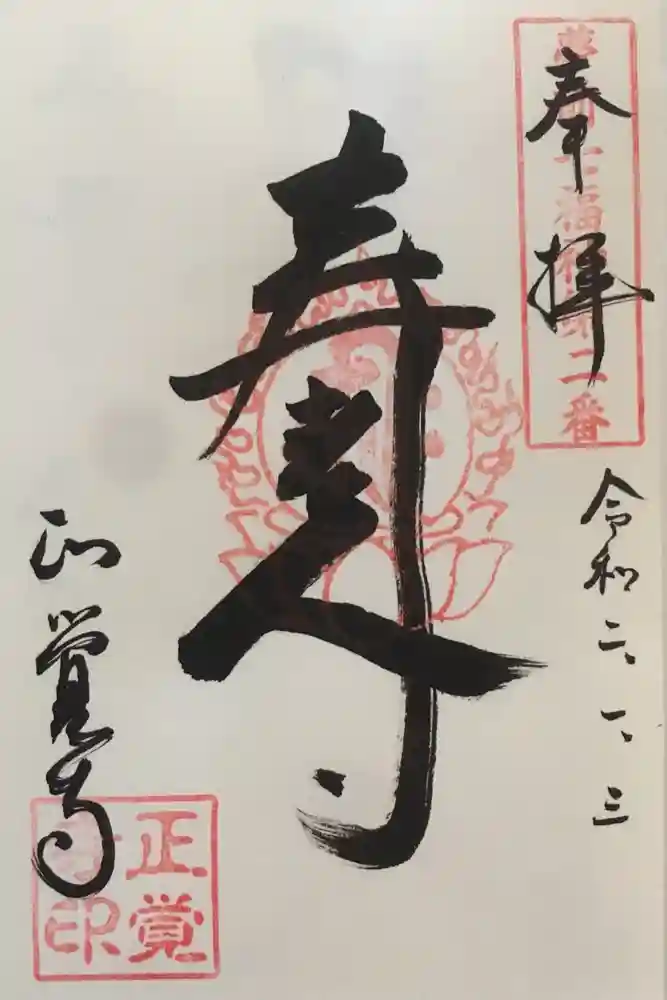 奉拝
七福神第二番
令和二、一、三
寿老人
正覚寺
正覚
寺印